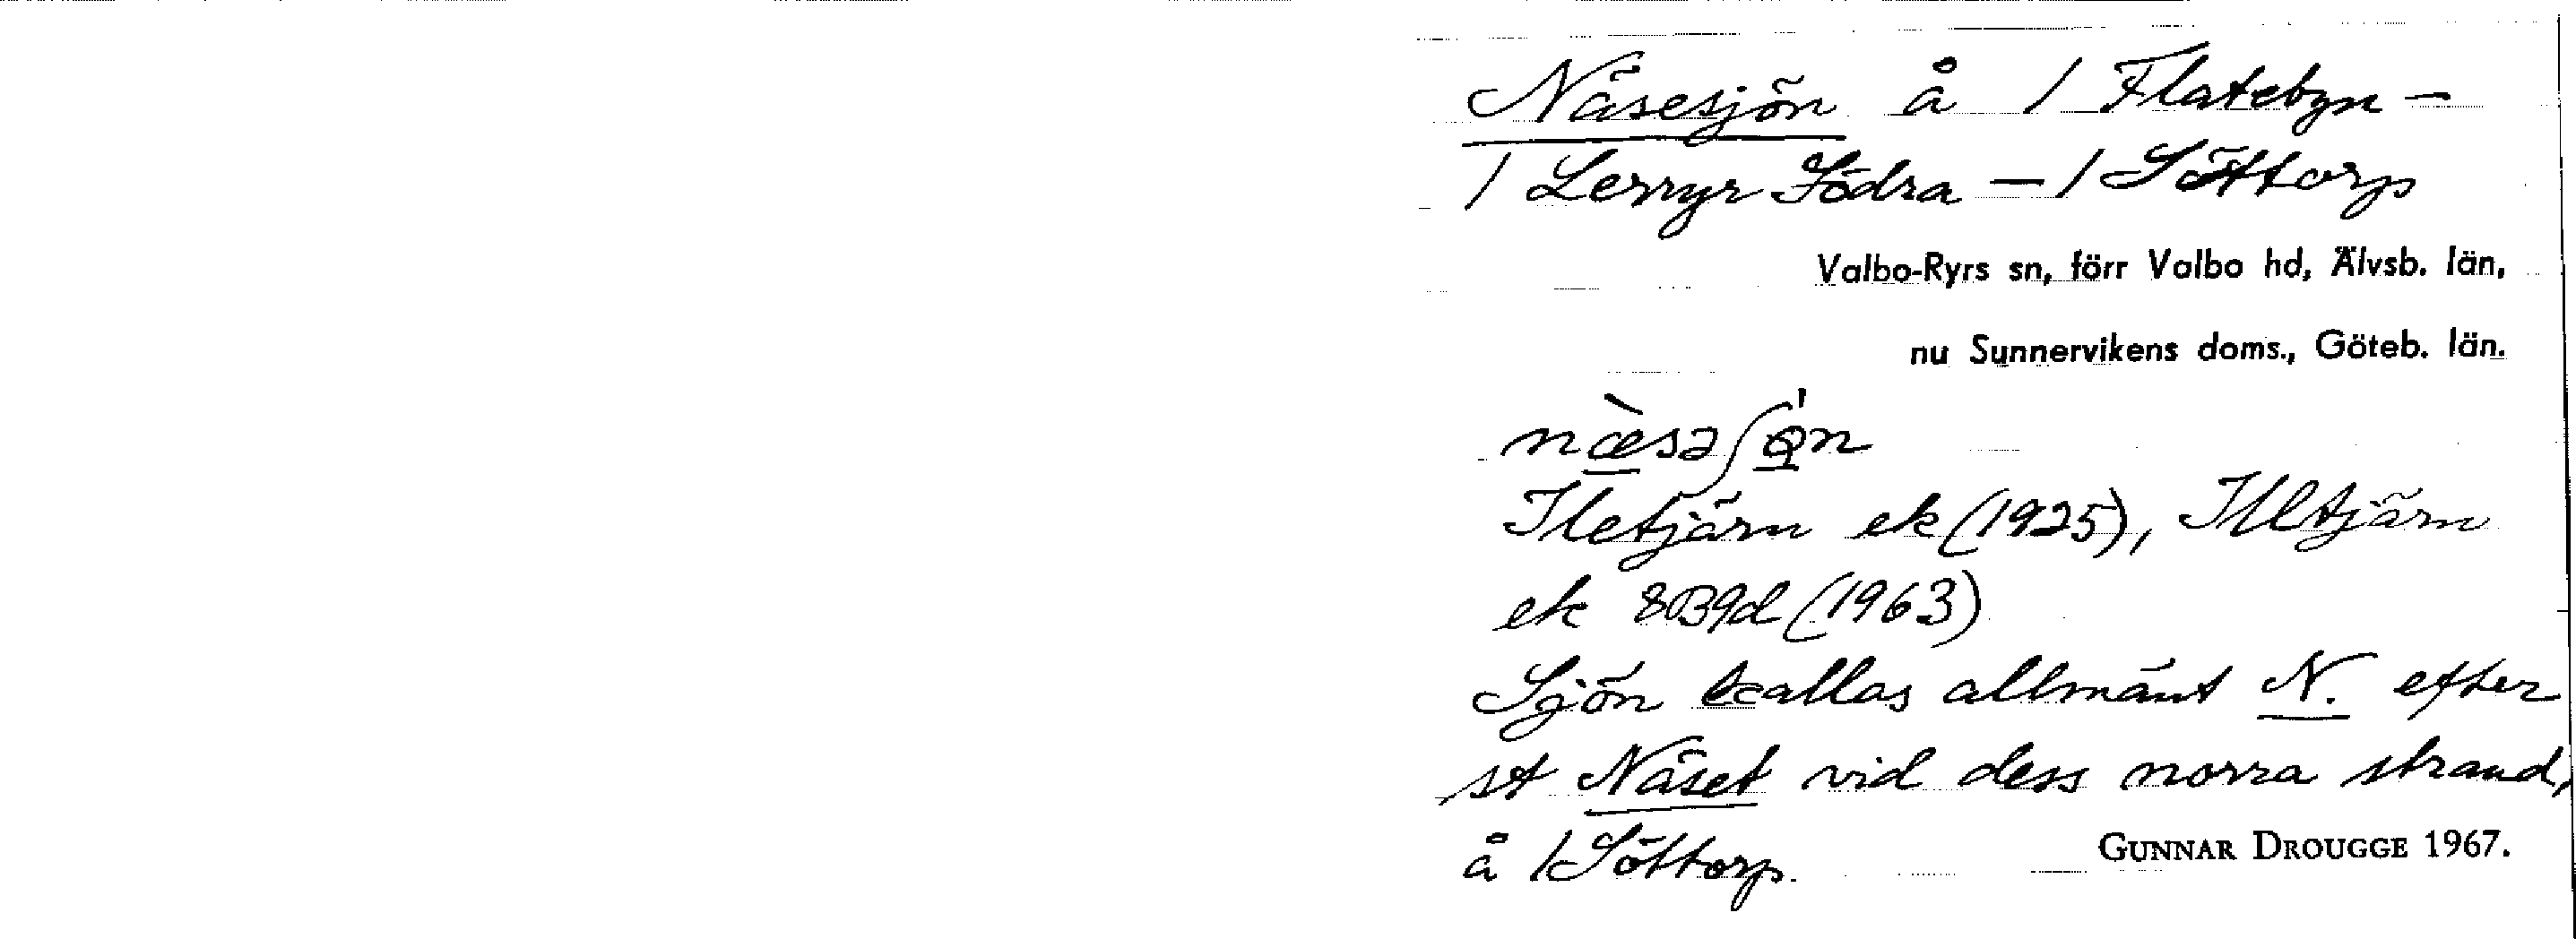 Näsesjön å / Flatebyn –
/ Lerryr Södra – / Söttorp
Valbo-Ryrs sn, förr Valbo hd, Älvsb. län,
nu Sunnervikens doms., Göteb. län.
næ̀sәʃø̀n
Iletjärn ek (1925), Illtjärn
ek 8B9d (1963)
Sjön kallas allmänt N. efter
st Näset vid dess norra strand,
å / Söttorp.
GUNNAR DROUGGE 1967.